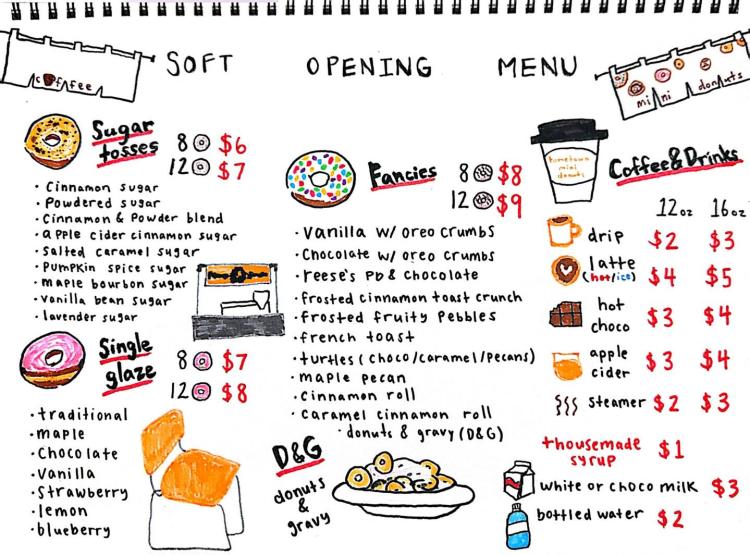 SOFT OPENING MENU
coffee
mini donuts
Sugar tosses
8 $6
12 $7
• Cinnamon sugar
• Powdered sugar
• Cinnamon & Powder blend
• apple cider cinnamon sugar
• salted caramel sugar
• Pumpkin spice sugar
• maple bourbon sugar
• vanilla bean sugar
• lavender sugar
Single glaze
8 $7
12 $8
• traditional
• maple
• Chocolate
• Vanilla
• Strawberry
• lemon
• blueberry
Fancies
8 $8
12 $9
• Vanilla w/ oreo crumbs
• Chocolate w/ oreo crumbs
• reese's pb & chocolate
• frosted cinnamon toast crunch
• frosted fruity pebbles
• french toast
• turtles (choco/caramel/pecans)
• maple pecan
• cinnamon roll
• caramel cinnamon roll
• donuts & gravy (D&G)
D&G
donuts
&
gravy
hometown
mini
donuts
Coffee & Drinks
12oz 16oz
drip $2 $3
latte $4 $5
(hot/ice)
hot choco $3 $4
apple cider $3 $4
steamer $2 $3
+housemade syrup $1
white or choco milk $3
bottled water $2